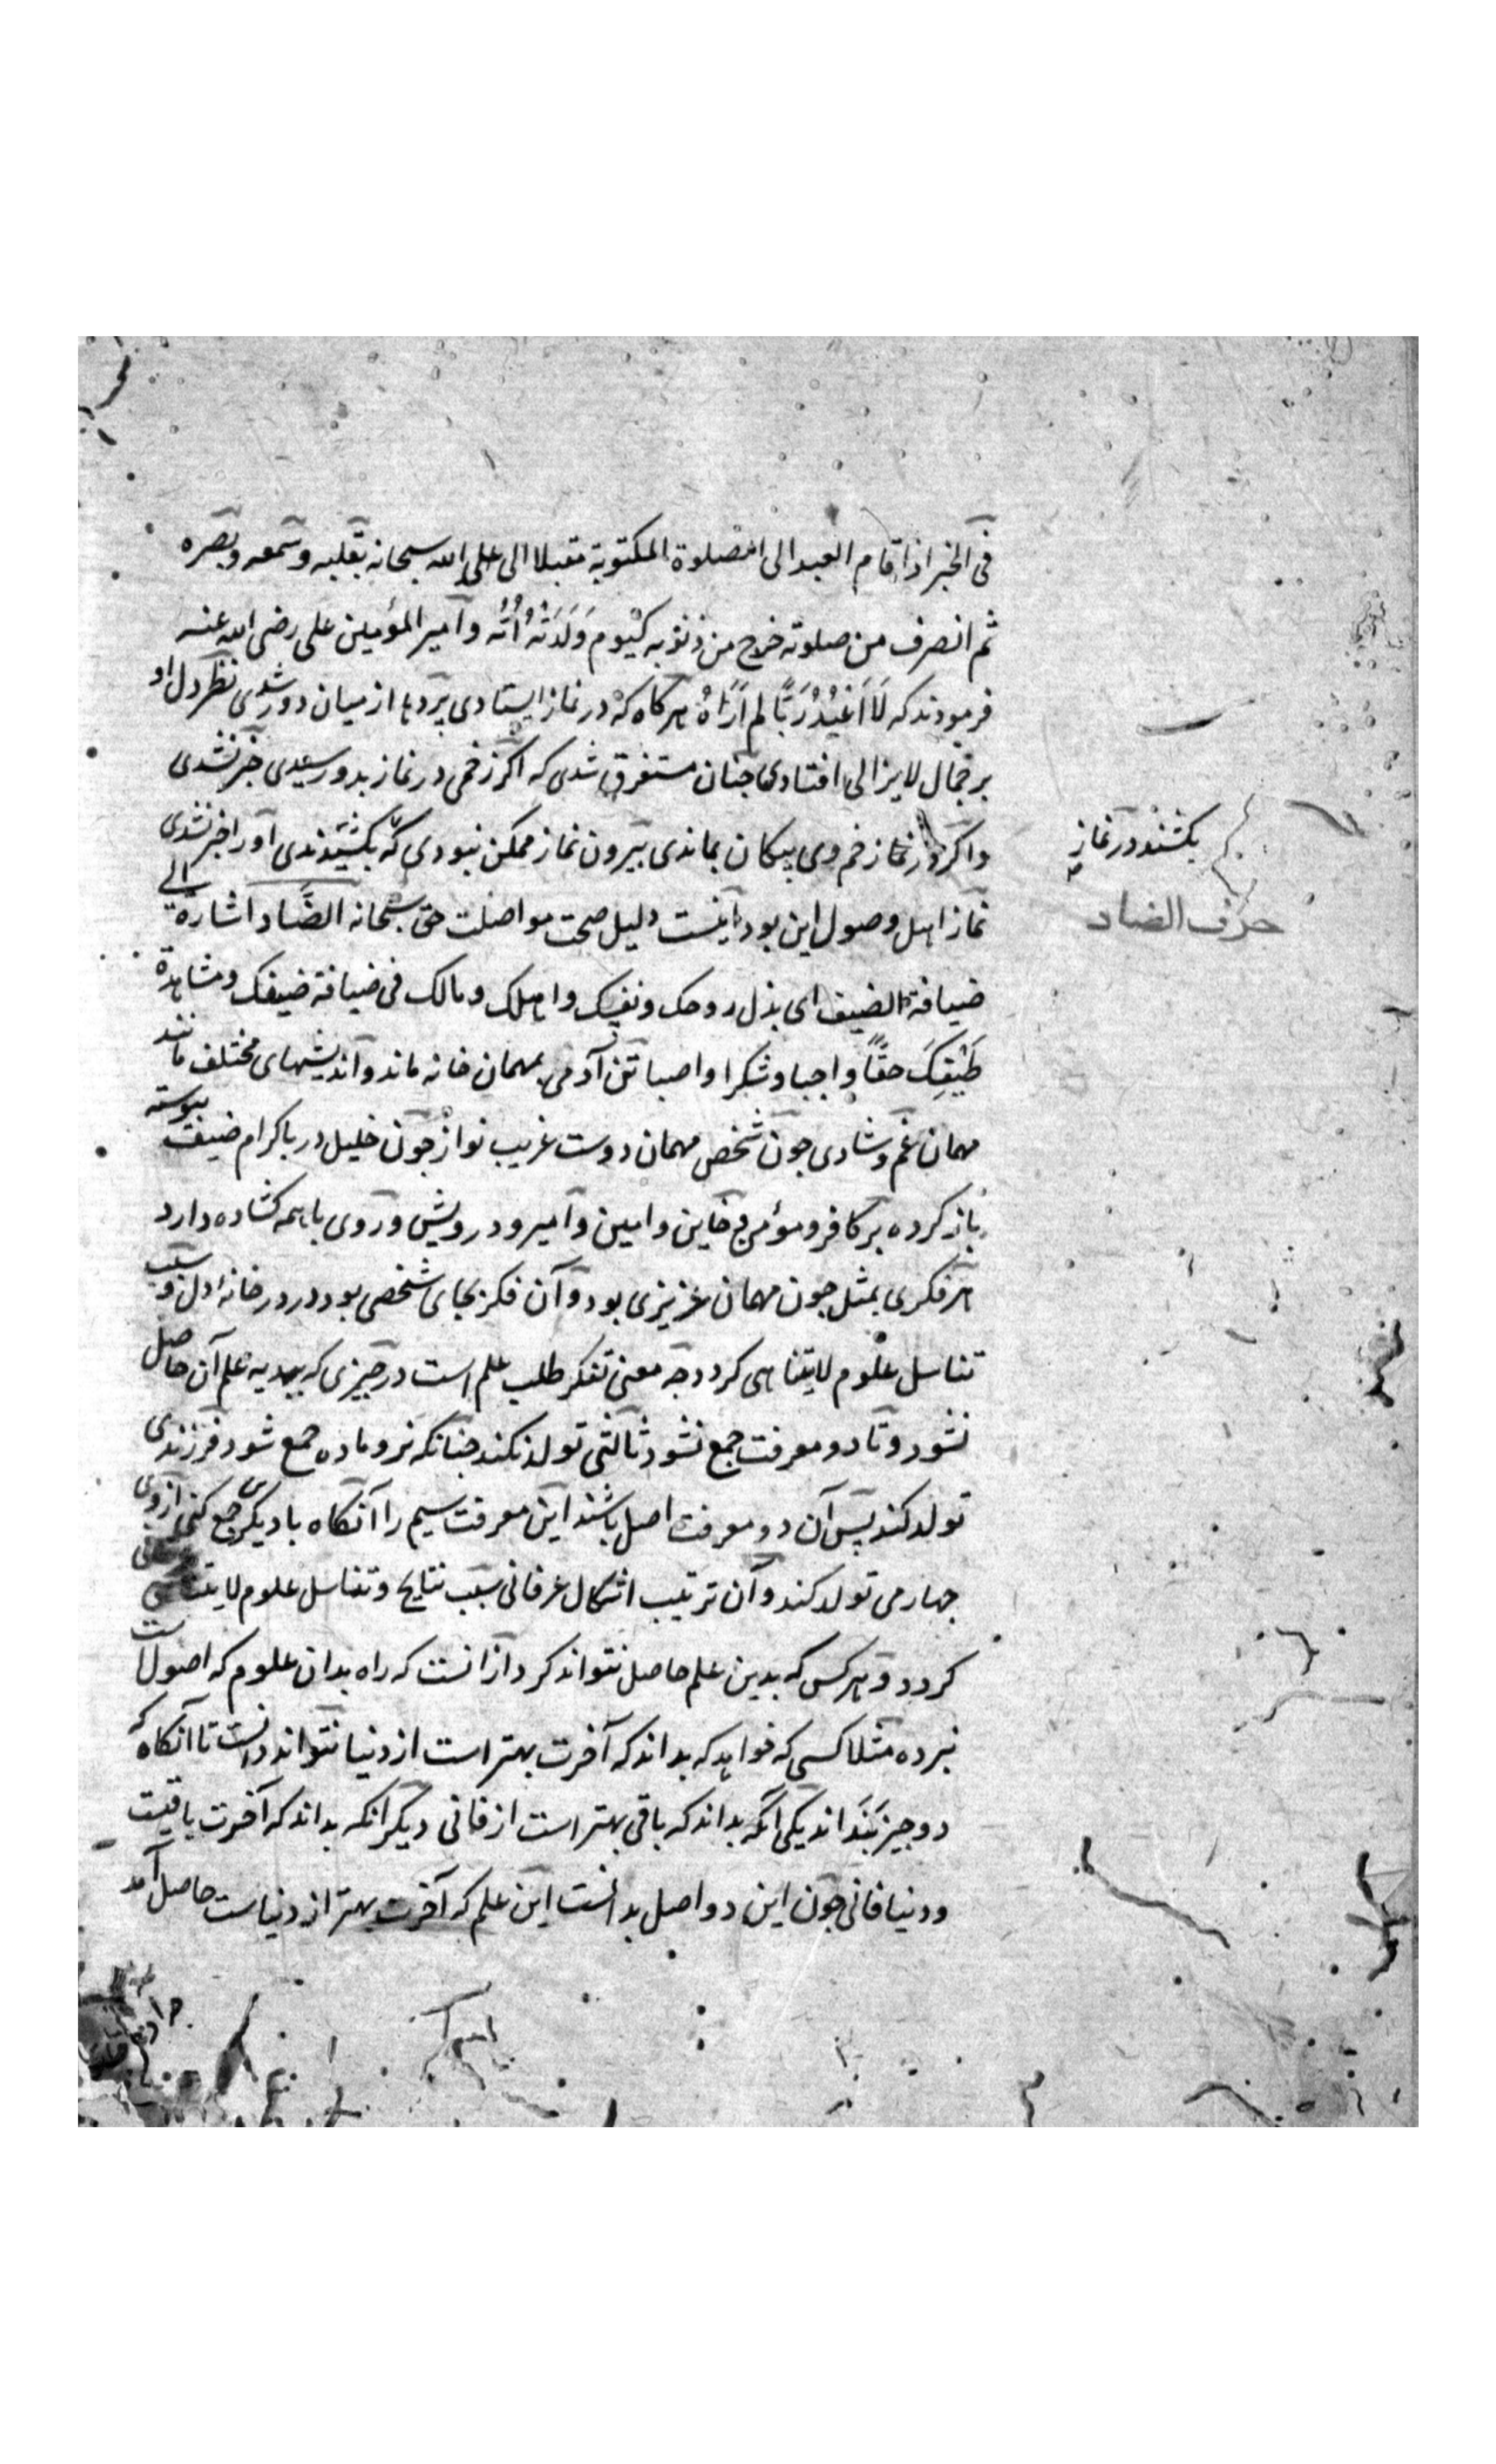 فی الخبر اذا قام العبد الی الصلوة المکتوبة مقبلا الی علی الله سبحانه بقلبه وسمعه وبصره
ثم انصرف من صلوته خرج من ذنوبه کیوم وَلَدَتْهُ اُمُّه وامیر المؤمنین علی رضی الله عنه
فرمودند که لَا اَعْبُدُ رَبًّا لم اَرَاهُ هرکاه که در نماز ایستادی پردها از میان دور شدی نظر دل او
بر جمال لایزالی افتادی جنان مستغرق شدی که اکر زخمی در نماز بدو رسیدی خبر نشدی
واکر در نماز زخم وی بیکان بماندی بیرون نماز ممکن نبودی که بکشیدندی اورا خبر نشدی
بکشند در نماز
نماز اهل وصول این بود اینست دلیل صحت مواصلت حق سبحانه الضاد اشارة الی
حرف الضاد
ضیافة الضیف ای بذل روحک ونفسک واهلک ومالک فی ضیافة ضیفک ومشاهدة
طَیْفِکَ حقاً واجبا وشکرا واصبا تن آدمی بمهمان خانه ماند واندیشهای مختلف مانند
مهمان غم وشادی جون شخص مهمان دوست غریب نواز جون خلیل در باکرام ضیف پیوسته
باز کرده بر کافر ومؤمن وخاین وامین وامیر ودرویش وروی باهمه کشاده دارد
هر فکری بمثل جون مهمان عزیزی بود وآن فکر بجای شخصی بود در در خانه دل وسبب
تناسل علوم لایتناهی کردد جه معنی تفکر طلب علم است در جیزی که ببدیه علم آن حاصل
نشود وتا دو معرفت جمع نشود ثالثی تولد نکند جنانکه نر وماده جمع شود فرزندی
تولد کند پس آن دو معرفت اصل باشند این معرفت سیم را آنکاه با دیکری جمع کنی از وی
جهارمی تولد کند وآن ترتیب اشکال عرفانی سبب نتایج وتناسل علوم لایتناهی
کردد وهرکس که بدین علم حاصل نتواند کرد از انست که راه بدان علوم که اصول است
نبرده مثلا کسی که خواهد که بداند که آخرت بهتر است از دنیا نتواند دانست تا آنکاه که
دو جیز بنداند یکی آنکه بداند که باقی بهتر است از فانی دیکر انکه بداند که آخرت باقیست
ودنیا فانی جون این دو اصل بدانست این علم که آخرت بهتر از دنیاست حاصل آمد